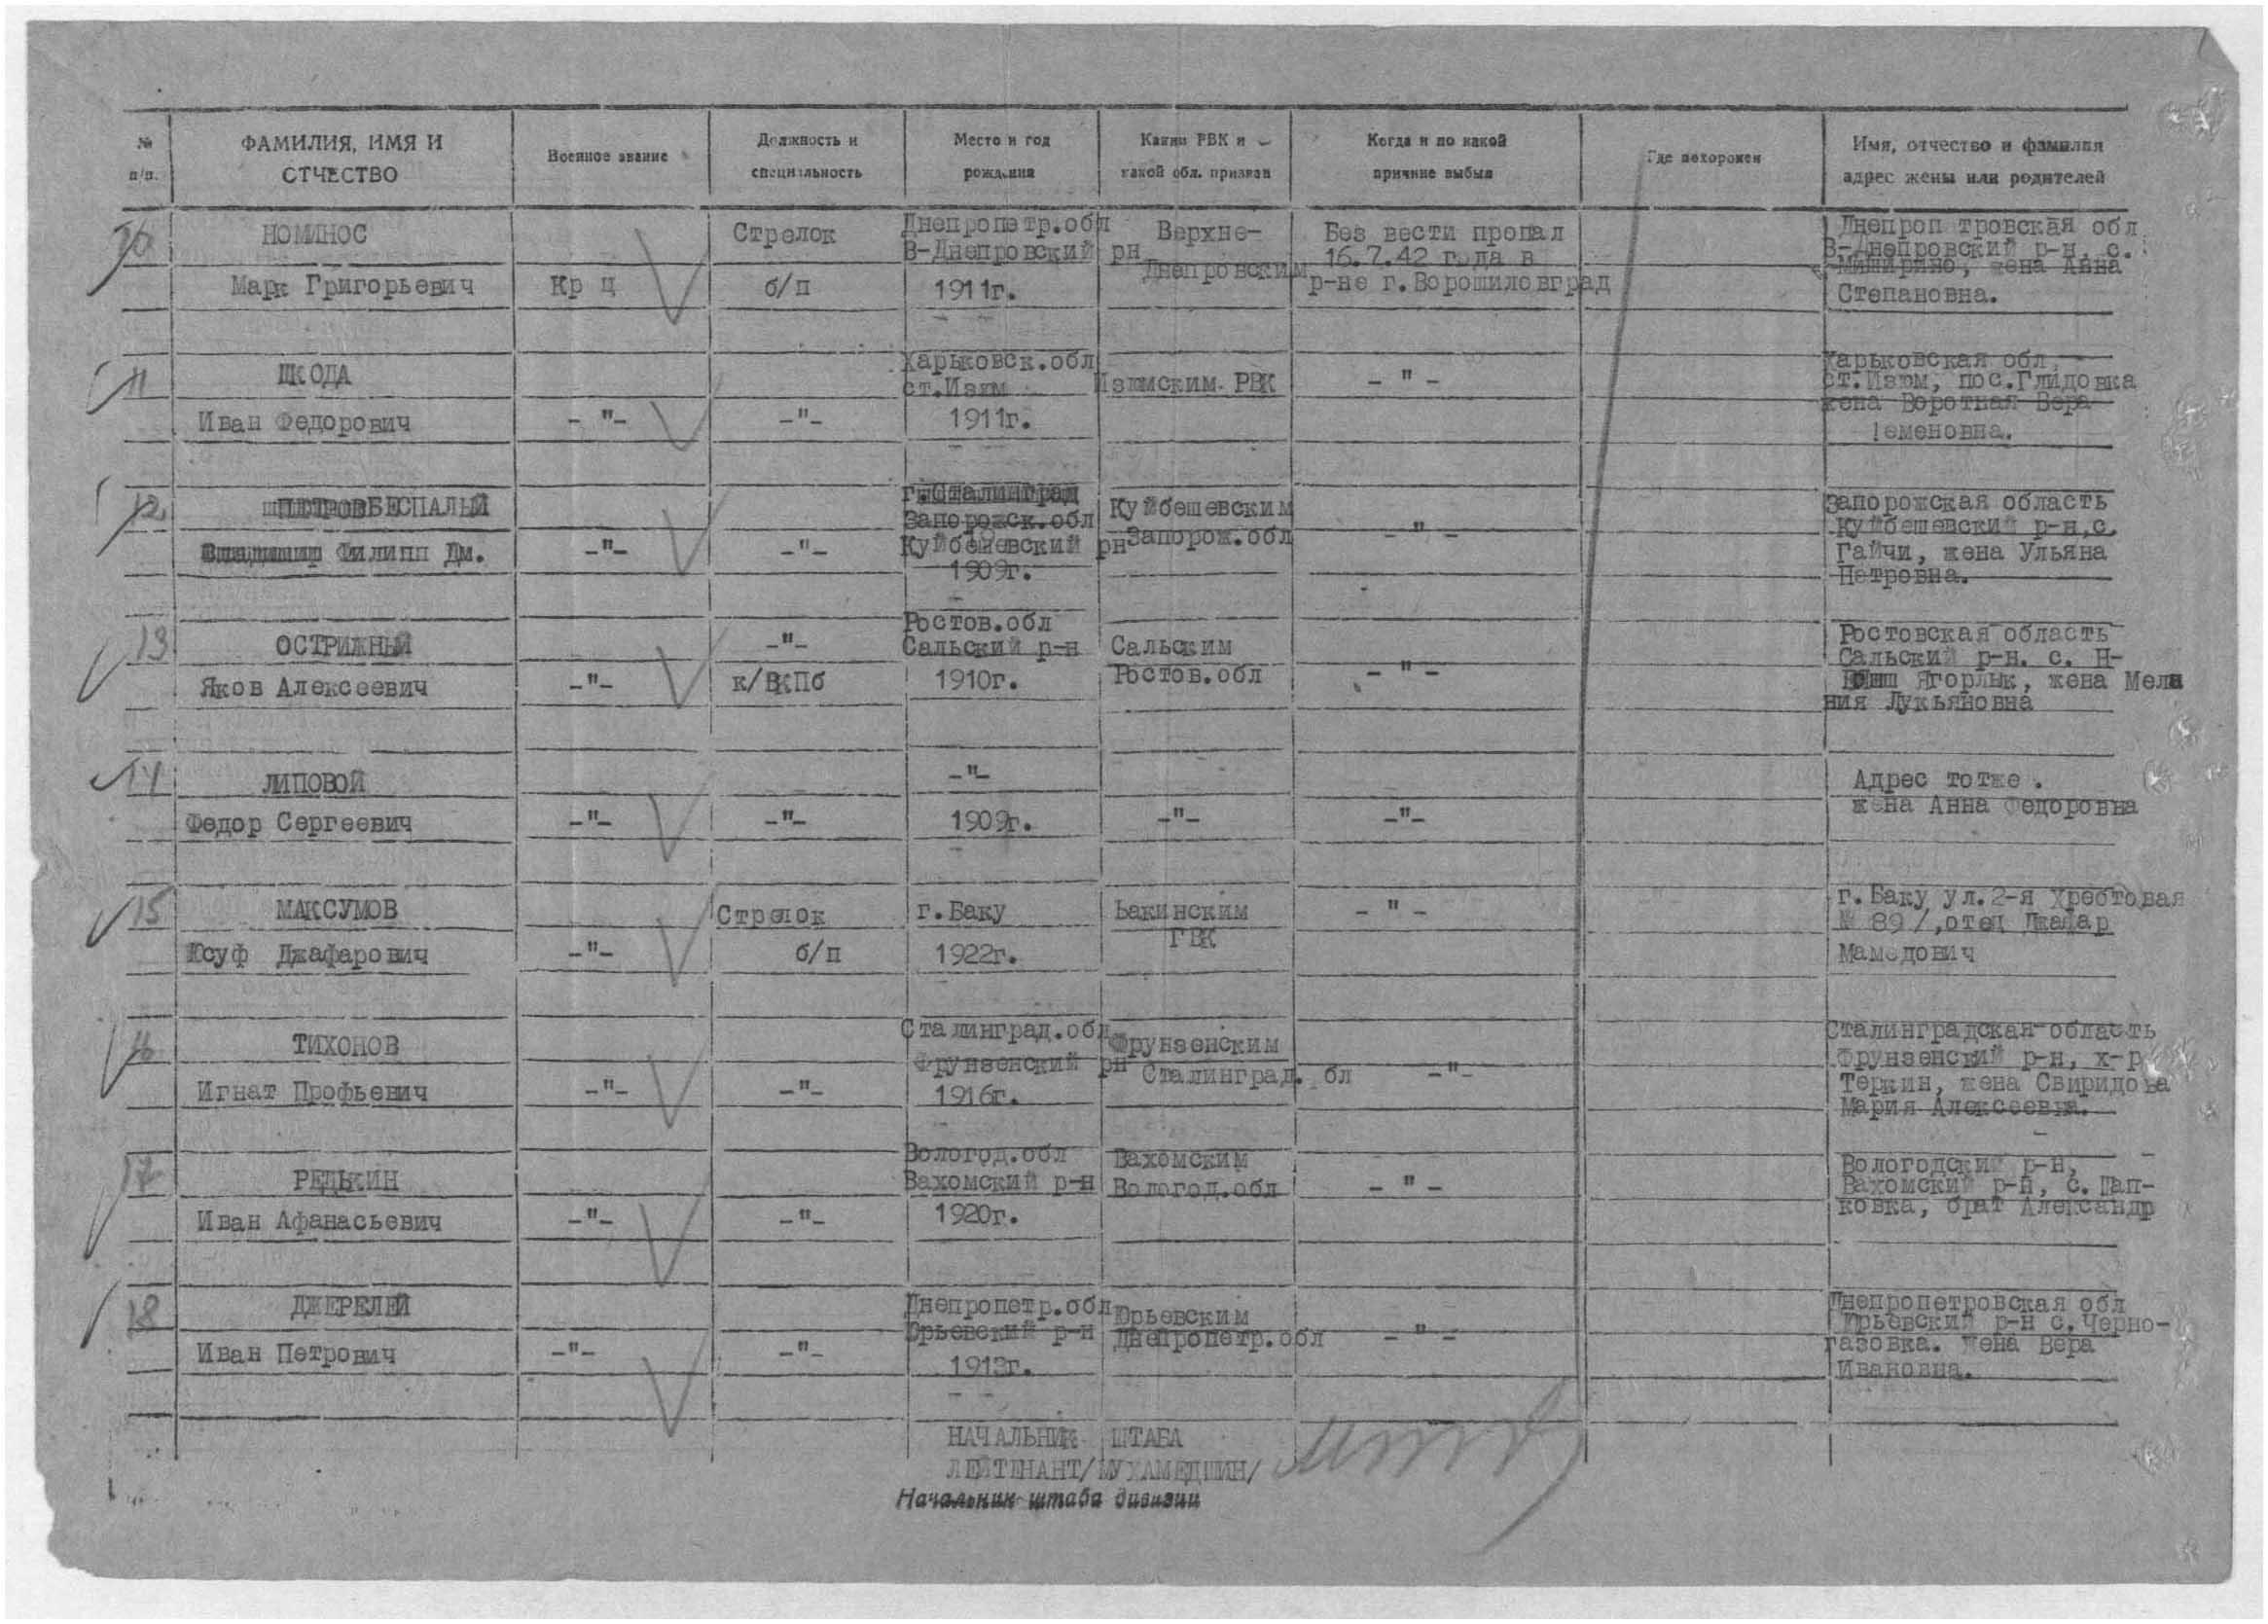 № п/п.
ФАМИЛИЯ, ИМЯ И ОТЧЕСТВО
Военное звание
Должность и специальность
Место и год рождения
Каким РВК и какой обл. призван
Когда и по какой причине выбыл
Где похоронен
Имя, отчество и фамилия адрес жены или родителей
10
НОМИНОС
Марк Григорьевич
Кр ц
Стрелок
б/п
Днепропетр.обл
В-Днепровский рн
1911г.
Верхне-
Днепровским
Без вести пропал
16.7.42 года в
р-не г.Ворошиловград
Днепроп тровская обл
В-Днепровский р-н, с.
Мишурино, жена Анна
Степановна.
11
ШКОДА
Иван Федорович
-"-
-"-
Харьковск.обл
ст.Изюм
1911г.
Изюмским РВК
-"-
Харьковская обл,
ст.Изюм, пос.Глидовка
жена Воротная Вера
Семеновна.
12
БЕСПАЛЫЙ
Филипп Дм.
-"-
-"-
г. Сталинград
Запорожск.обл
Куйбешевский рн
1909г.
Куйбешевским
Запорож.обл
-"-
Запорожская область
Куйбешевский р-н,с.
Гайчи, жена Ульяна
Петровна.
13
ОСТРИЖНЫЙ
Яков Алексеевич
-"-
-"-
к/ВКПб
Ростов.обл
Сальский р-н
1910г.
Сальским
Ростов.обл
-"-
Ростовская область
Сальский р-н. с. Н-
Ягорлык, жена Мела
ния Лукьяновна
14
ЛИПОВОЙ
Федор Сергеевич
-"-
-"-
-"-
1909г.
-"-
-"-
Адрес тотже.
жена Анна Федоровна
15
МАКСУМОВ
Юсуф Джафарович
-"-
Стрелок
б/п
г.Баку
1922г.
Бакинским
ГВК
-"-
г.Баку ул.2-я Хребтовая
№ 89/,отец Джафар
Мамедович
16
ТИХОНОВ
Игнат Профьевич
-"-
-"-
Сталинград.обл
Фрунзенский рн
1916г.
Фрунзенским
Сталинград. бл
-"-
Сталинградская область
Фрунзенский р-н, х-р
Теркин, жена Свиридова
Мария Алексеевна.
17
РЕДЬКИН
Иван Афанасьевич
-"-
-"-
Вологод.обл
Вахомский р-н
1920г.
Вахомским
Вологод.обл
-"-
Вологодский р-н,
Вахомский р-н, с. Пап-
ковка, брат Александр
18
ДЖЕРЕЛЕЙ
Иван Петрович
-"-
-"-
Днепропетр.обл
Юрьевский р-н
1913г.
Юрьевским
Днепропетр.обл
-"-
Днепропетровская обл
Юрьевский р-н с.Черно-
газовка. жена Вера
Ивановна.
НАЧАЛЬНИК ШТАБА
ЛЕЙТЕНАНТ/МУХАМЕДШИН/
Начальник штаба дивизии